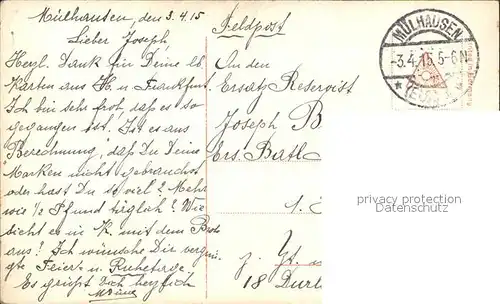 Mülhausen, den 3.4.15
Lieber Joseph,
Herzl. Dank für Deine lb
Karten aus H. u. Frankfurt.
Ich bin sehr froh, daß es so
gegangen ist. Ist es aus
Berechnung, daß Du Deine
Marken nicht gebrauchst
oder hast Du so viel? Mehr
wie ½ Pfund täglich? Wie
sieht es in K. mit dem Brot
aus? Ich wünsche Dir vergnü-
gte Feier- u. Ruhetage.
Es grüßt Dich herzlich
Feldpost
An den
Ersatz Reservist
Joseph B
Ers. Batl.
z. Zt.
18 Durl
MÜLHAUSEN
-3.4.15.5-6N
privacy protection